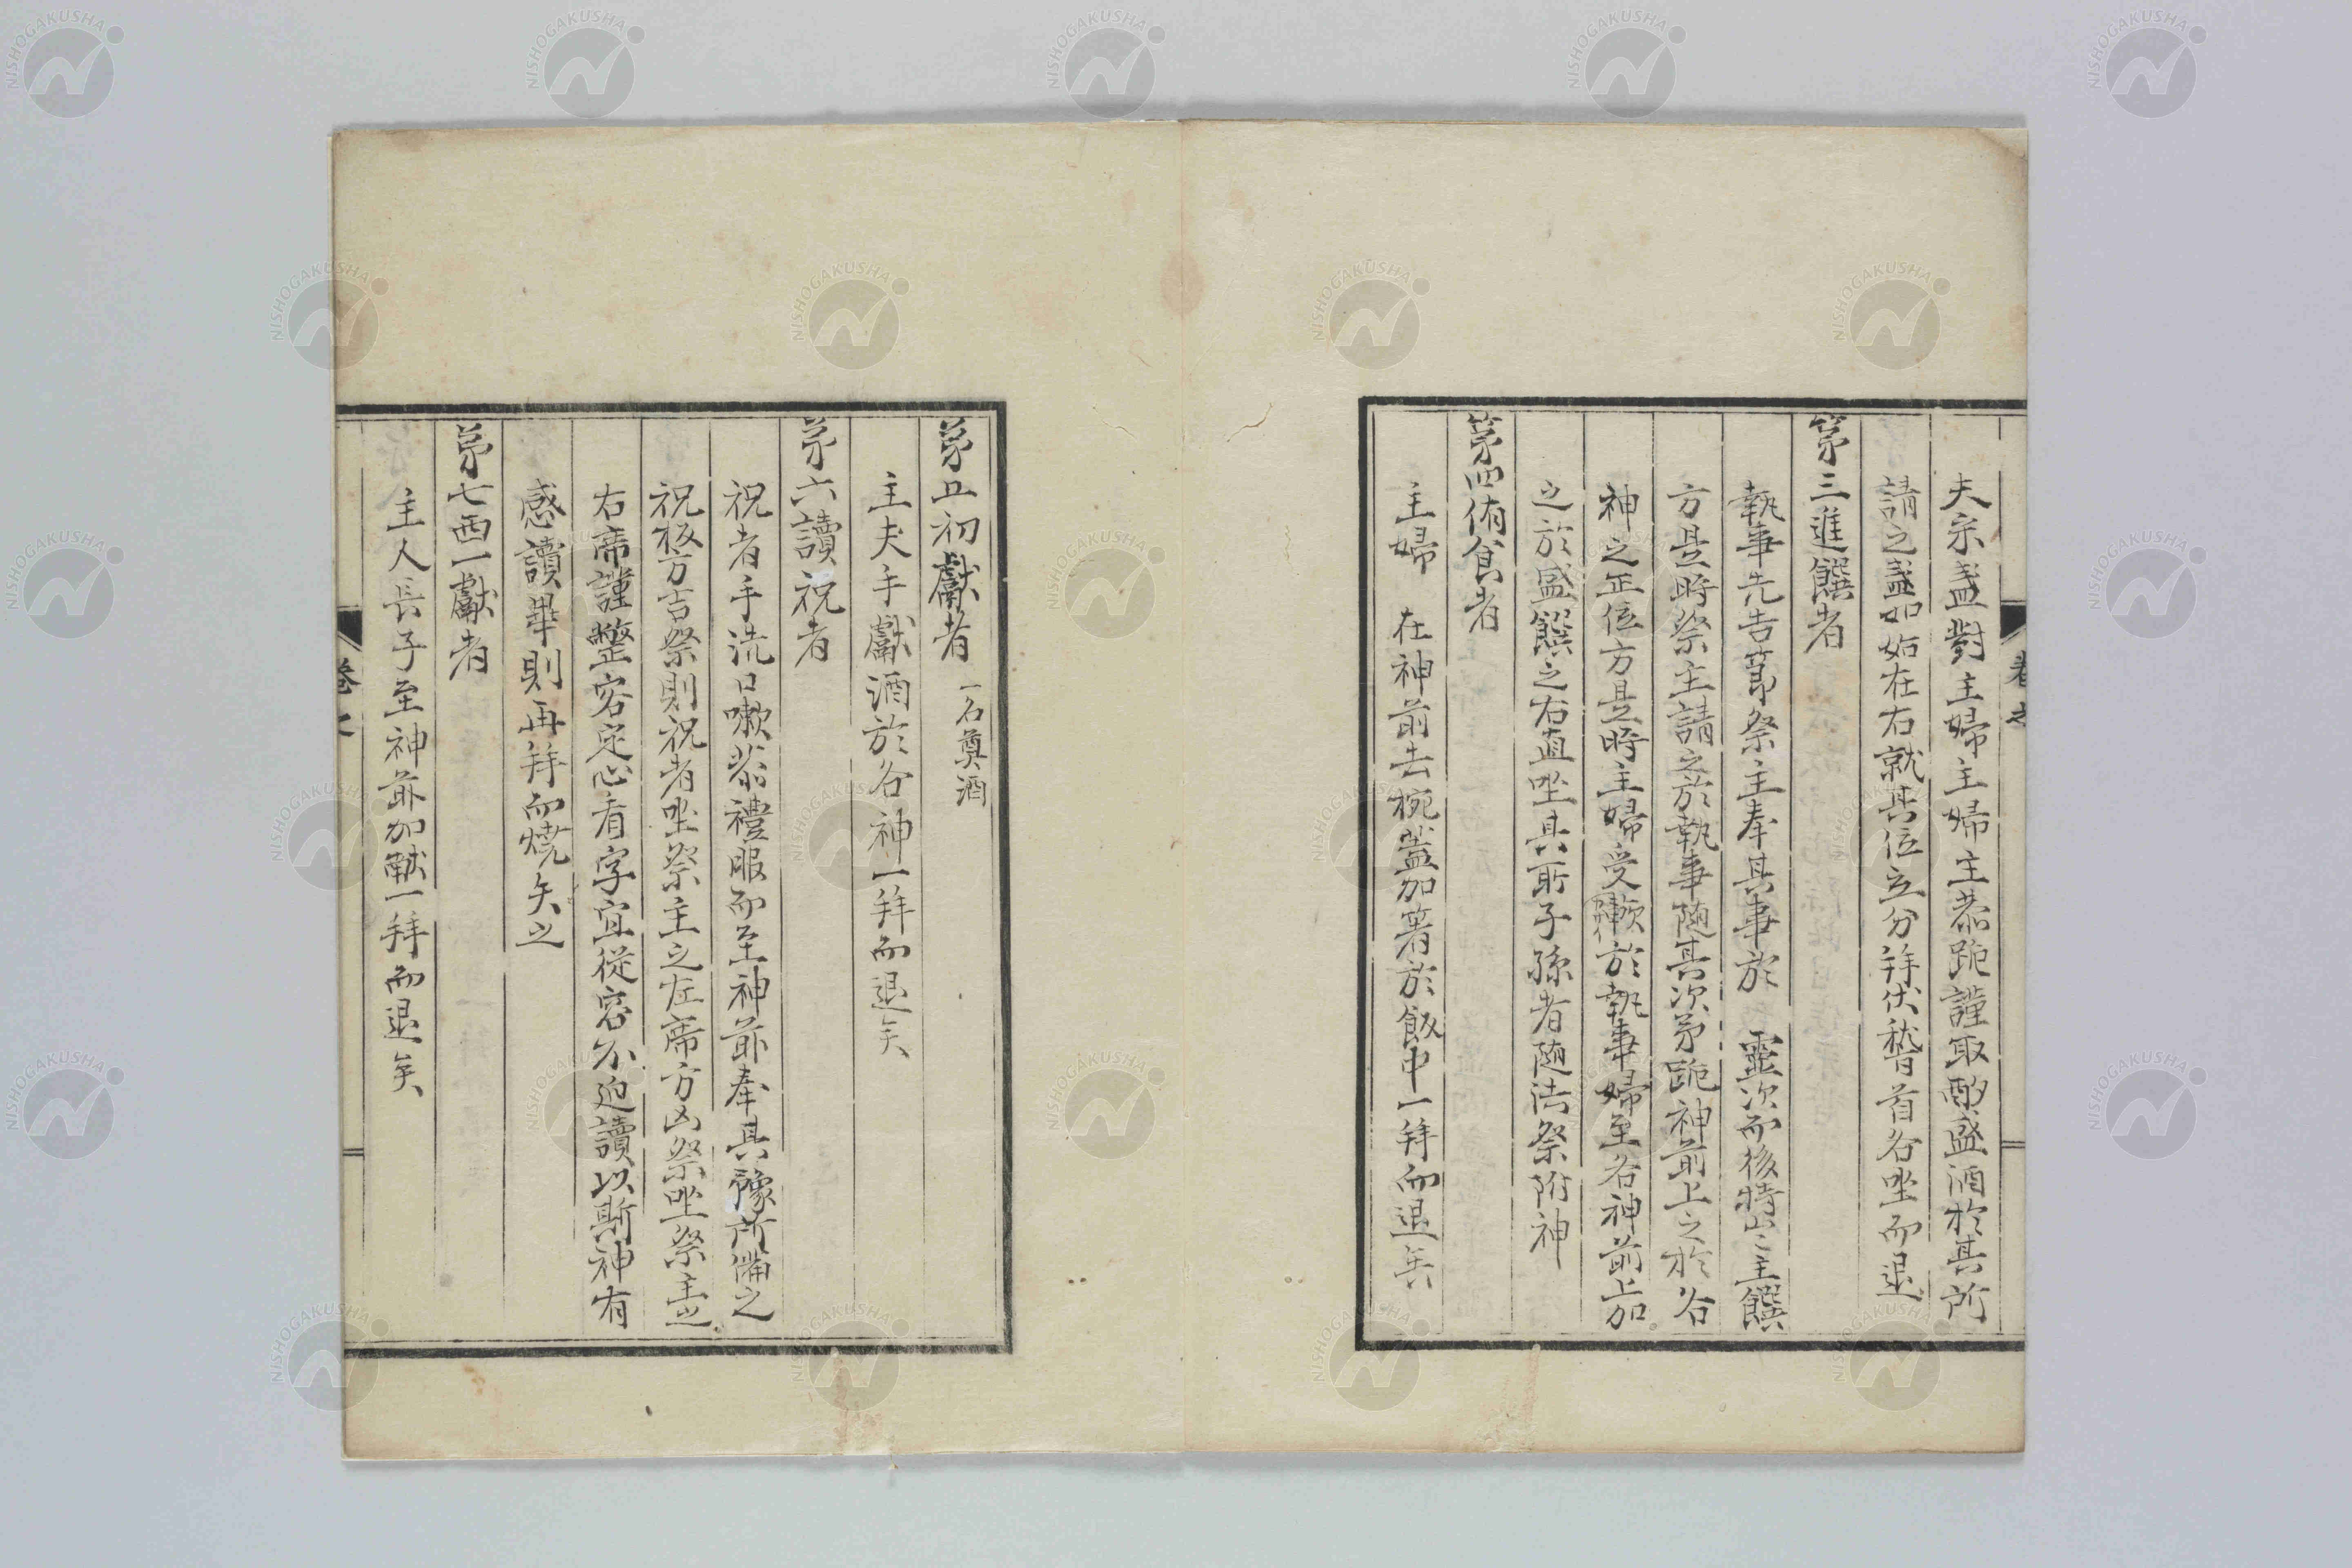 夫宗盞對主婦主婦主恭跪謹取酌盛酒於其所
請之盞如始在右就其位立分拜伏稽首各坐而退
第三進饌者
執事先告節祭主奉其事於　靈次而後特出主饌
方是時祭主請之於執事随其次第跪神前上之於各
神之正位方是時主婦受於執事婦至各神前上加
之於盛饌之右直坐具所子孫者随法祭附神
第四侑食者
主婦　在神前去椀蓋加箸於飯中一拜而退矣
第五初獻者　一名奠酒
主夫手獻酒於各神一拜而退矣
第六讀祝者
祝者手洗口嗽恭禮服而至神前奉其豫所備之
祝板方吉祭則祝者坐祭主之左席方凶祭坐祭主之
右席謹整容定心看字宜從容不迫讀以斯神有
感讀畢則再拜而焼矣之
第七西一獻者
主人長子至神前加献一拜而退矣
卷之
NISHOGAKUSHA